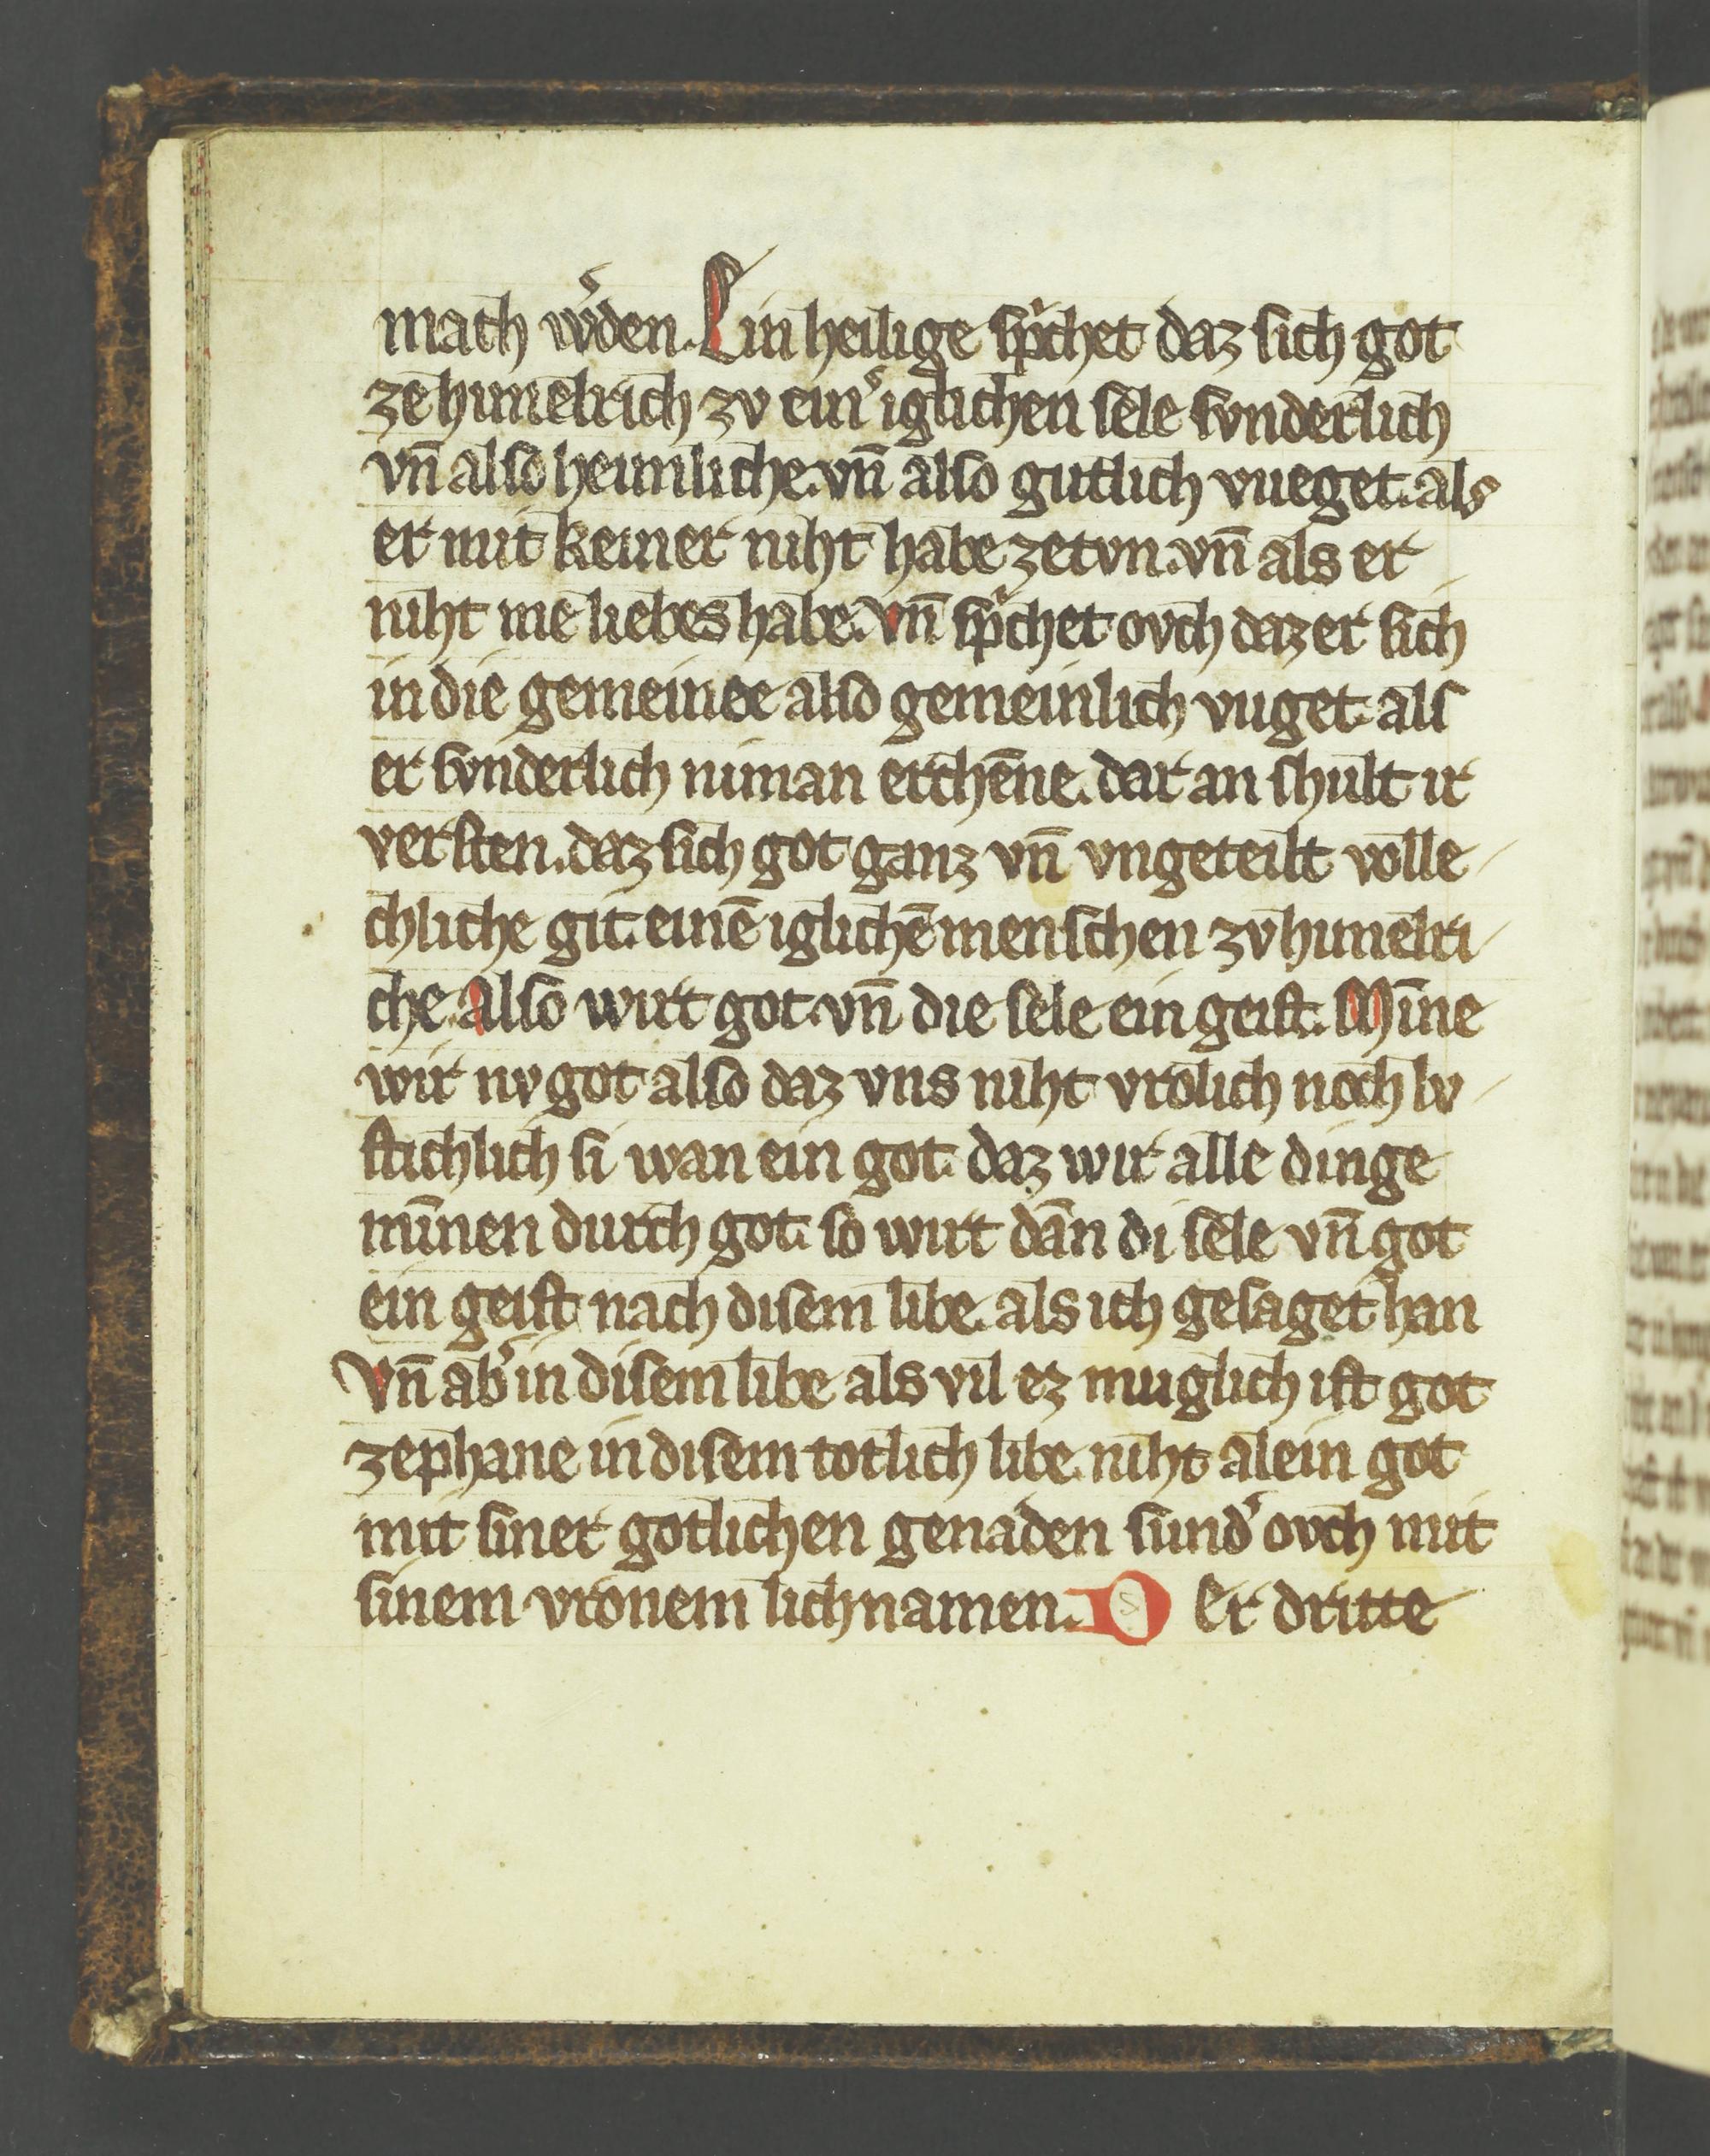 mach w͛den. Ein heilige sp̍chet daz sich got
ze himelrich zv ein͛ iglichen sele svnderlich
vn̄ also heimliche. vn̄ also gutlich vueget. als
er mit keiner niht habe ze tvn. vn̄ als er
niht me liebes habe. Vn̄ sp̍chet ovch daz er sich
in die gemeinee also gemeinlich vuget. als
er svnderlich niman erchēne. dar an shult ir
versten. daz sich got ganz vn̄ vngeteilt volle
chliche git. einē iglichē menschen zv himelri
che. Also wirt got. vn̄ die sele ein geist. Mīne
wir nv got also daz vns niht vrolich noch lv
stichlich si wan ein got. daz wir alle dinge
mīnen durch got. so wirt dān di sele vn̄ got
ein geist nach disem libe. als ich gesaget han
Vn̄ ab͛ in disem libe als vil ez muglich ist got
zephane in disem totlich libe. niht alein got
mit siner gotlichen genaden sund͛ ovch mit
sinem vronem lichnamen. D er dritte